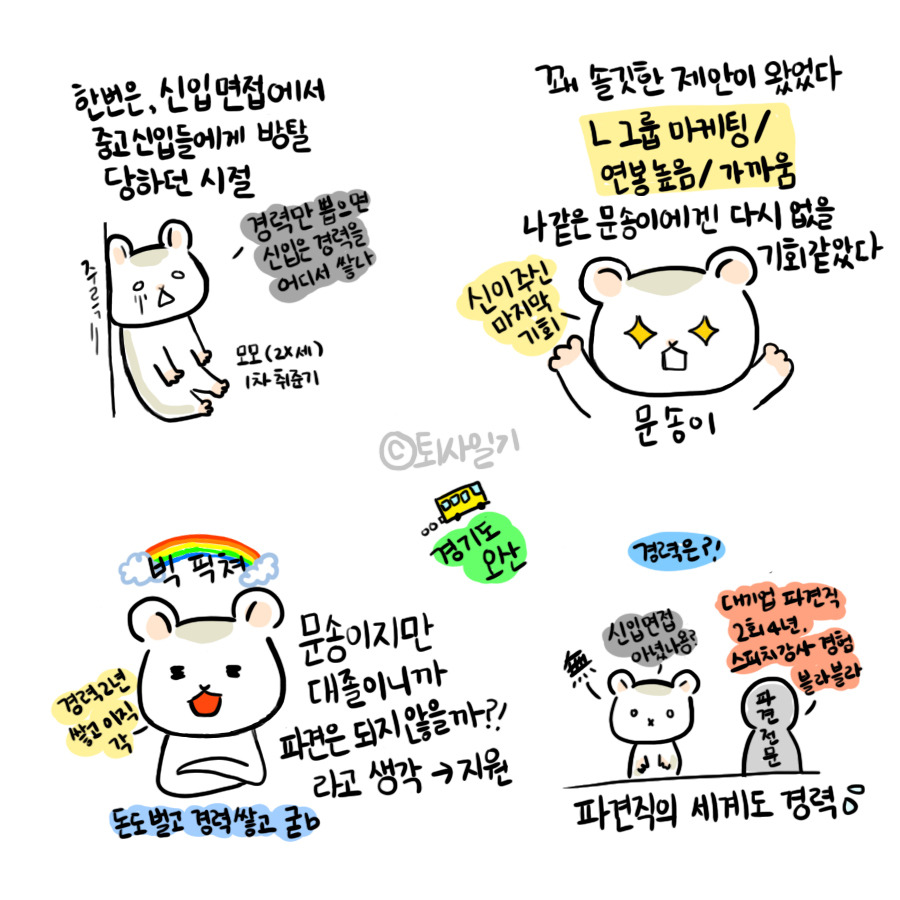 한번은, 신입면접에서
중고신입들에게 방탈
당하던 시절
경력만 뽑으면
신입은 경력을
어디서 쌓나
주르륵
모모(2X세)
1차 취준기
꽤 솔깃한 제안이 왔었다
L그룹 마케팅/
연봉높음/가까움
나같은 문송이에겐 다시 없을
기회같았다
신이주신
마지막
기회
문송이
©퇴사일기
빅 픽쳐
경력2년
쌓고 이직
각
문송이지만
대졸이니까
파견은 되지않을까?!
라고 생각 → 지원
돈도벌고 경력쌓고 굳b
경기도
오산
경력은?!
無
신입면접
아녔나용?
대기업 파견직
2회 4년.
스피치강사 경험
블라블라
파견전문
파견직의 세계도 경력